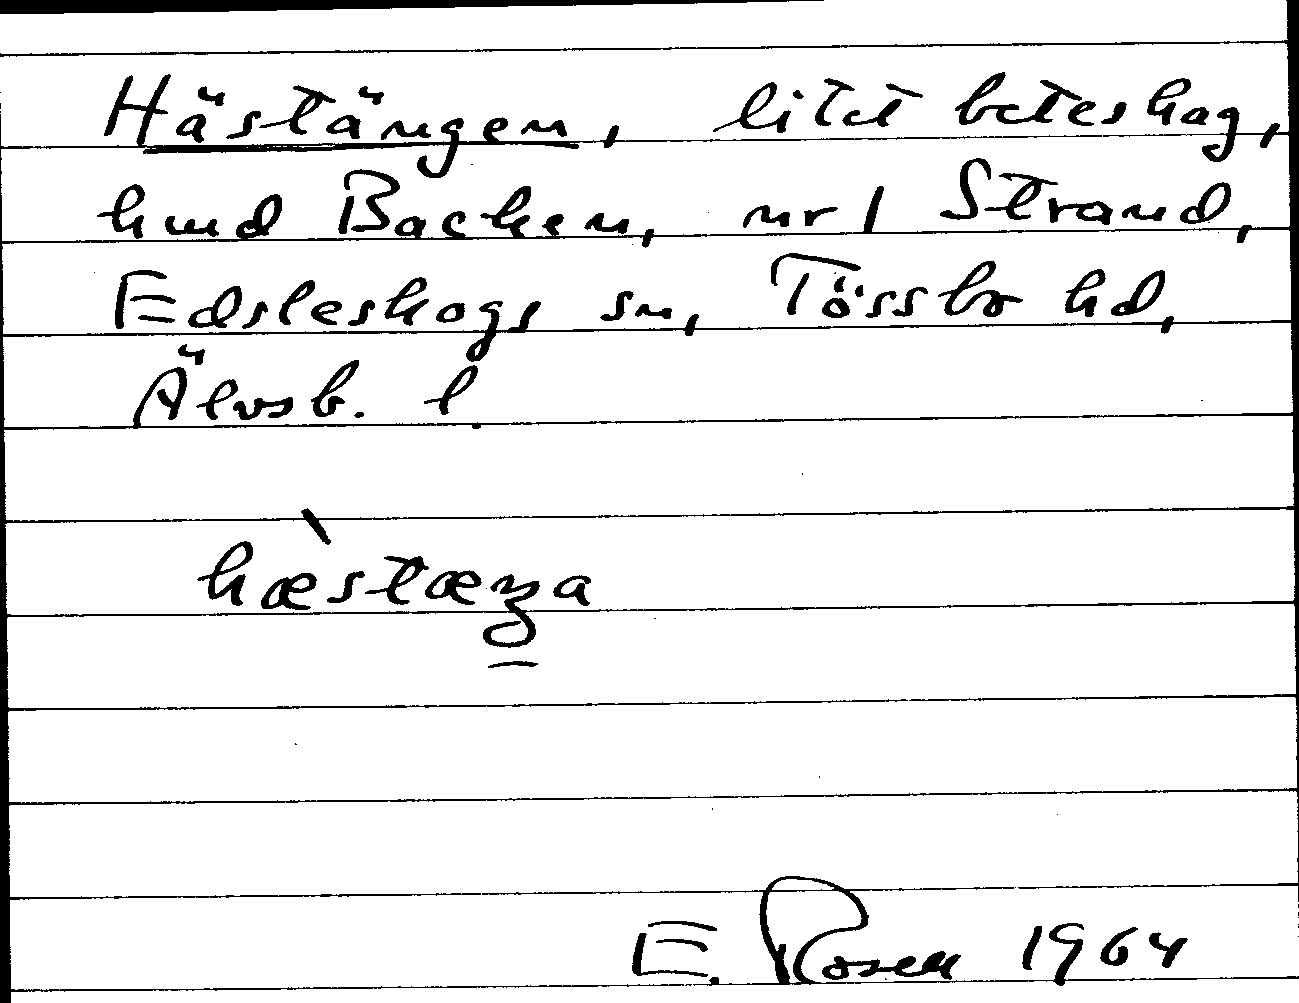 Hästängen, litet beteshag,
hmd Backen, nr 1 Strand,
Edsleskogs sn, Tössbo hd,
Älvsb. l.
hæ̀stæŋa
E. Rosen 1964